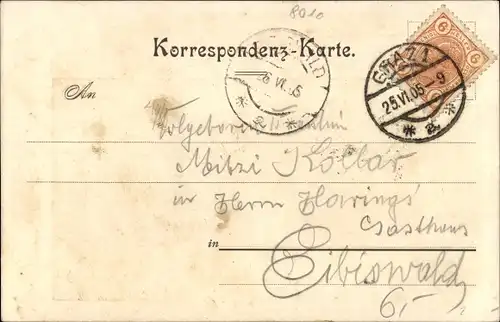 8010
Korrespondenz-Karte.
6
GRAZ 1
25.VI.05-9
6.VI.05
An
Wolgeboren Fräulein
Mitzi Kollar
in Herrn Haring's
Gasthaus
in Eibiswald
6,-